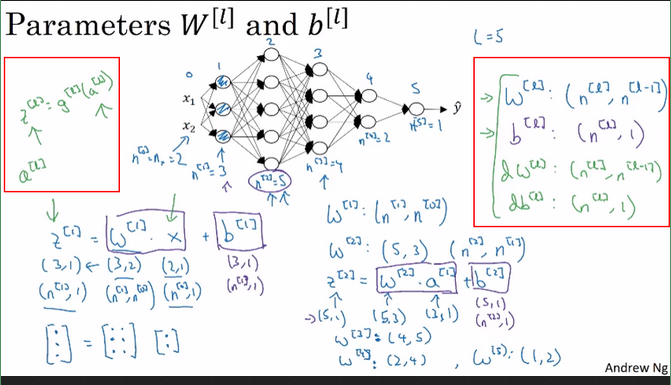 Parameters W^[l] and b^[l]
L=5
z^[l] = g^[l](a^[l])
a^[l]
0 1 2 3 4 5
x₁
x₂
ŷ
n^[0]=n_x=2
n^[1]=3
n^[2]=5
n^[3]=4
n^[4]=2
n^[5]=1
W^[l]: (n^[l], n^[l-1])
b^[l]: (n^[l], 1)
dW^[l]: (n^[l], n^[l-1])
db^[l]: (n^[l], 1)
z^[1] = W^[1] · x + b^[1]
(3,1) ← (3,2) (2,1) (3,1)
(n^[1],1) (n^[1],n^[0]) (n^[0],1) (n^[1],1)
[:] = [::] [:]
W^[1]: (n^[1], n^[0])
W^[2]: (5,3) (n^[2], n^[1])
z^[2] = W^[2] · a^[1] + b^[2]
→(5,1) (5,3) (3,1) (5,1)
(n^[2],1)
W^[3]: (4,5)
W^[4]: (2,4) , W^[5]: (1,2)
Andrew Ng